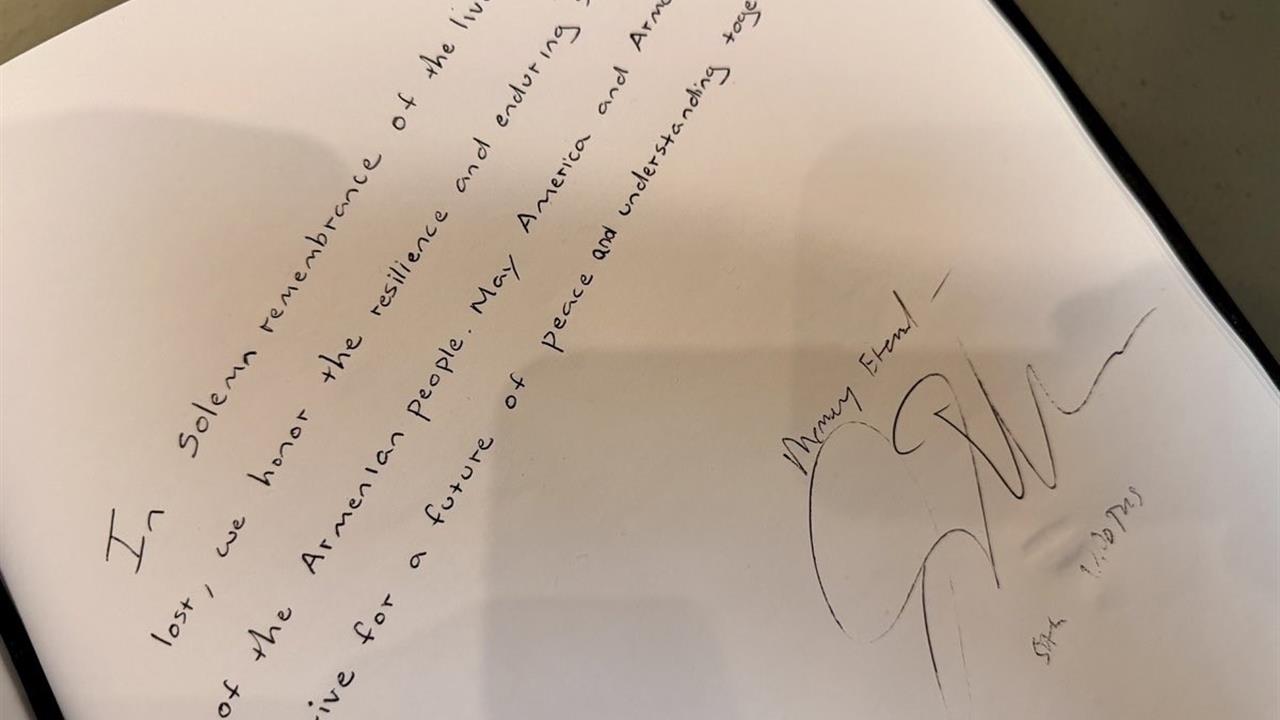 In Solemn remembrance of the liv
lost, we honor the resilience and enduring
of the Armenian people. May America and Arme
rive for a future of peace and understanding toge
Memory Eternal -